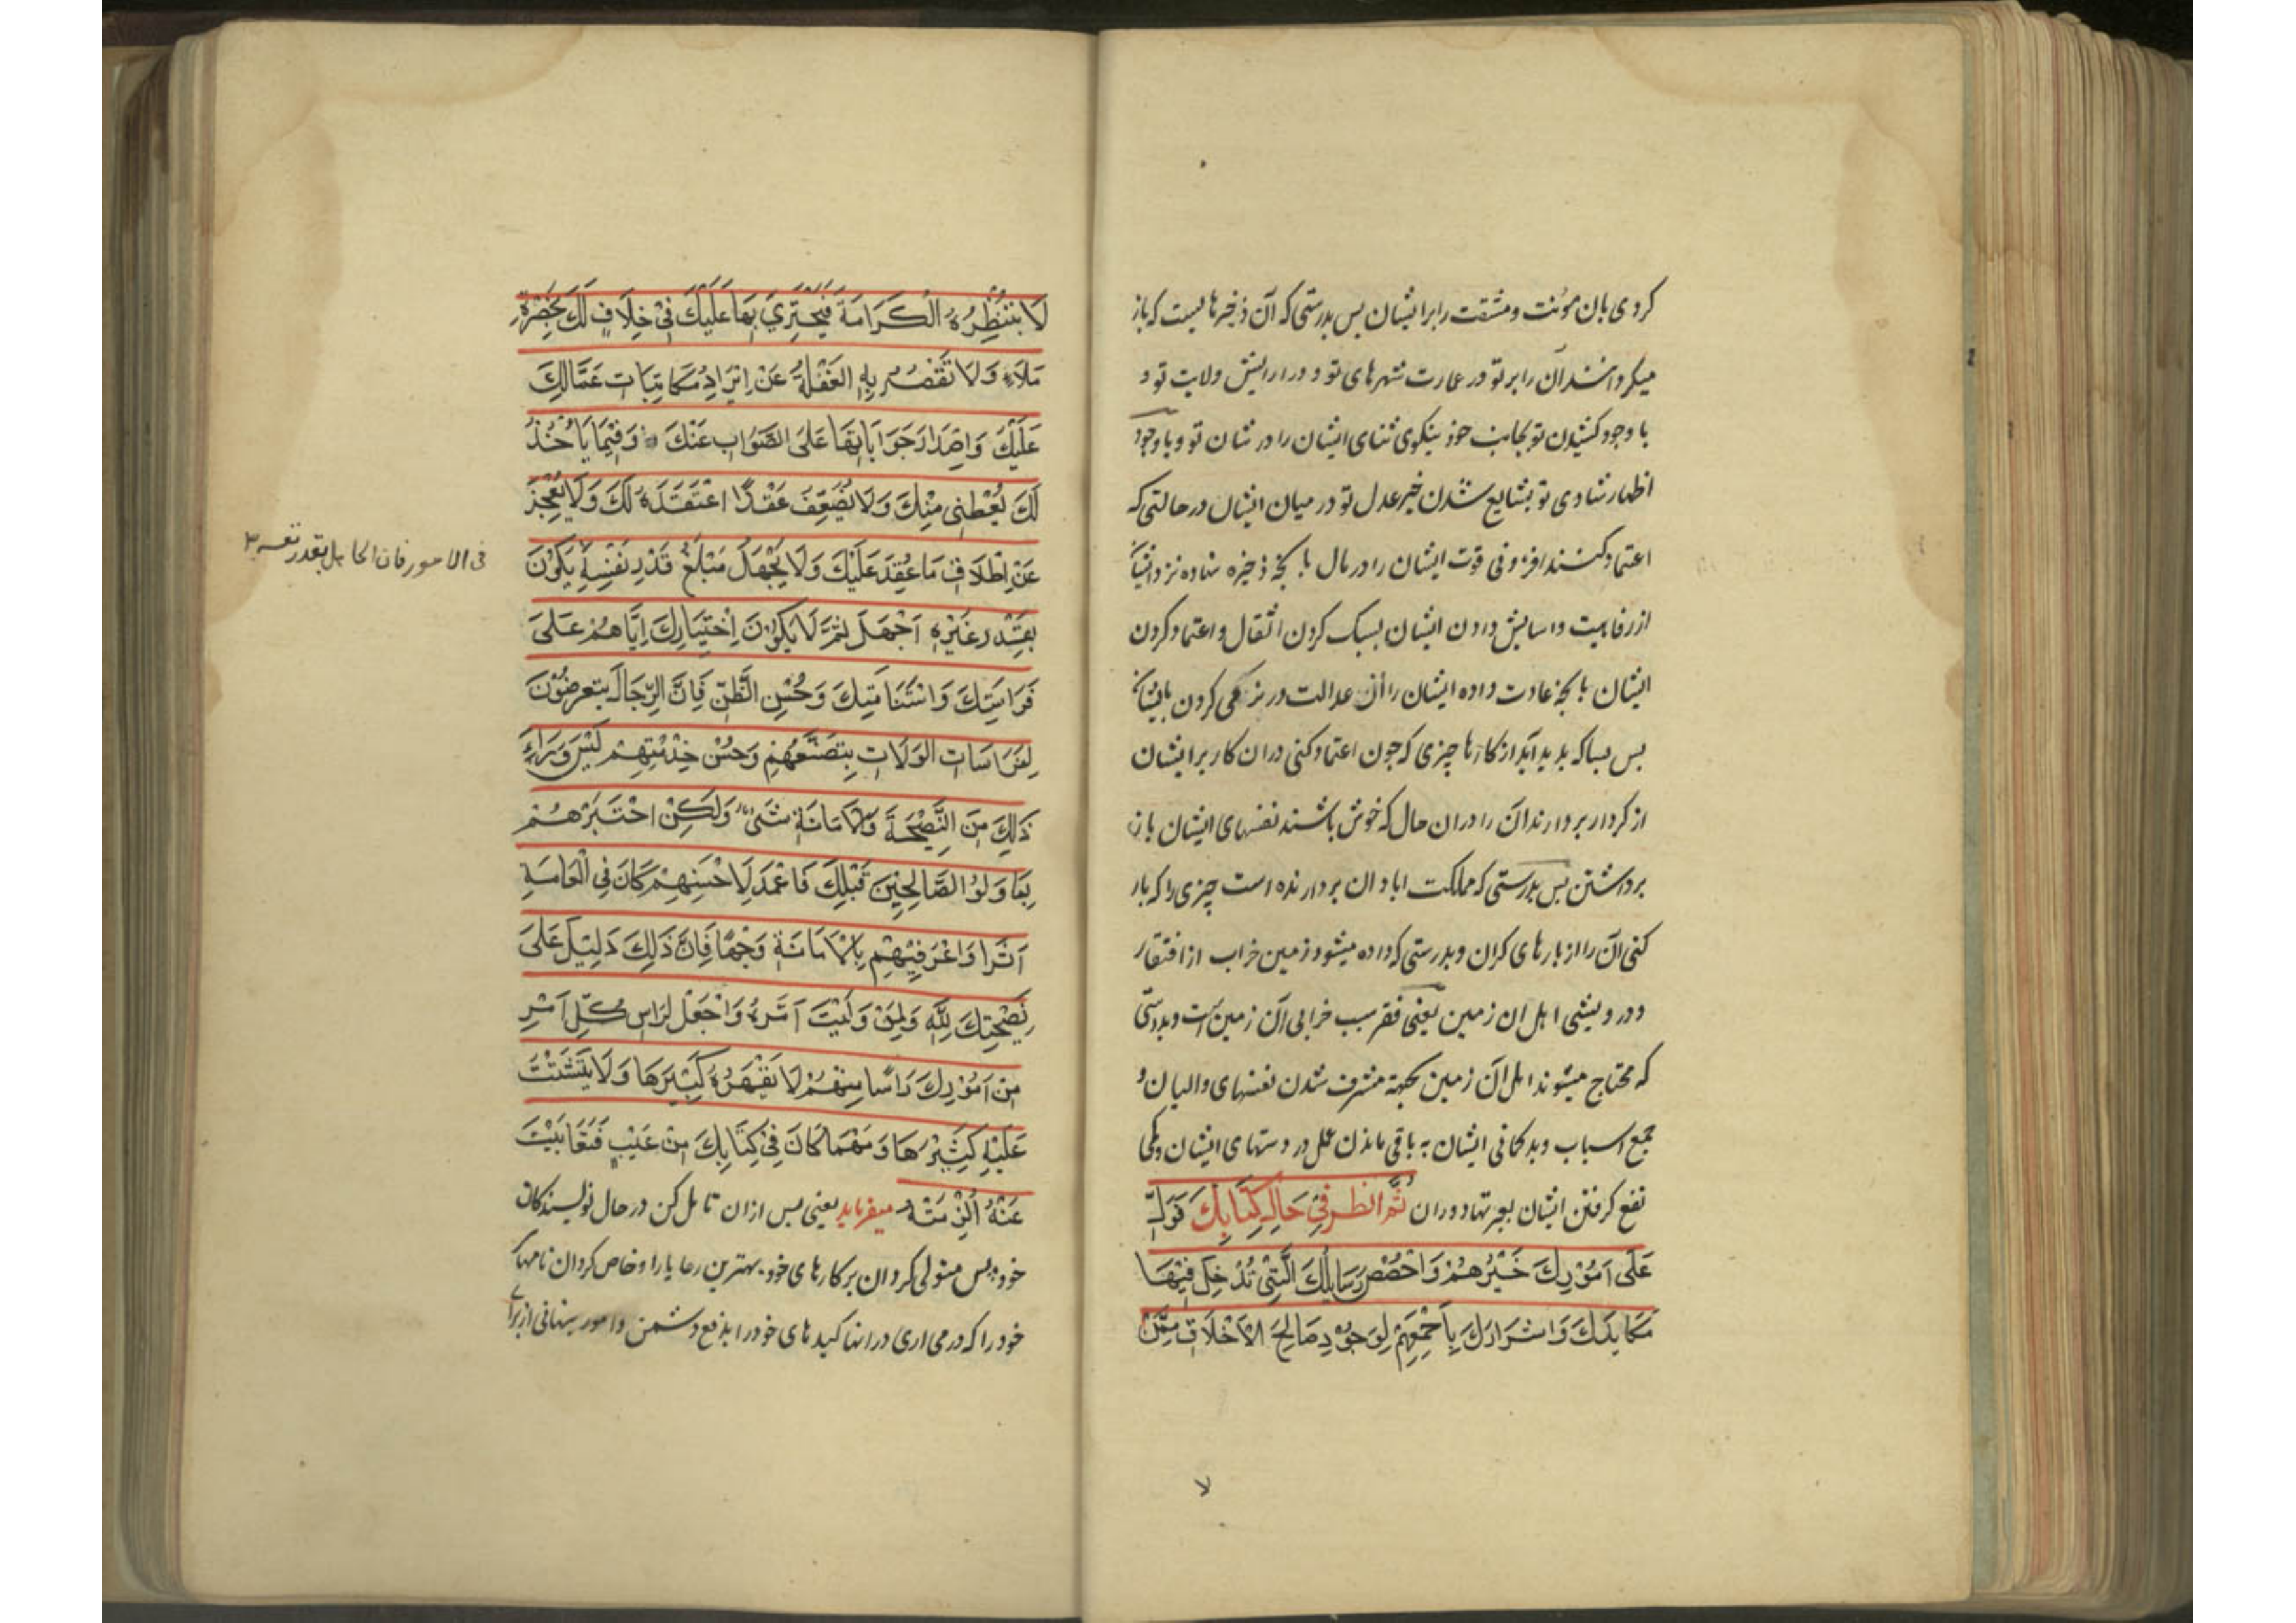 کردی بان مؤنت و مشقت را برایشان پس بدرستی که آن ذخیرها لیست که باز
میکردانند آن را بر تو در عمارت شهرهای تو و در ارایش ولایت تو و
با وجود کشیدن تو بجانب خود نیکوی ثنای ایشان را در شان تو و با وجود
اظهار شادی تو بشایع شدن خبر عدل تو در میان ایشان در حالتی که
اعتماد کنند افزونی قوت ایشان را در مال بانچه ذخیره نهاده نزد ایشان
از رفاهیت و اسایش دادن ایشان بسبک کردن اثقال و اعتماد کردن
ایشان بانچه عادت داده ایشان را از عدالت در نرمی کردن بایشان
بس بسا که بدید آید از کارها چیزی که جون اعتماد کنی در ان کار بر ایشان
از کردار بردارند آن را در ان حال که خوش باشند نفسهای ایشان بان
برداشتن بس بدرستی که مملکت ابادان بردارنده است چیزی را که بار
کنی آن را از بارهای کران و بدرستی که داده میشود زمین خراب از افتقار
و درویشی اهل ان زمین یعنی فقر سبب خرابی آن زمین است و بدرستی
که محتاج میشوند اهل آن زمین بجهة مشرف شدن نفسهای والیان و
جمع اسباب و بدکمانی ایشان به باقی ماندن عمل در دستهای ایشان و کمی
نفع کرفتن ایشان بعبرتها دوران ثُمَّ انظر فِي حَالِ كِتَابِكَ فَوَلِّ
عَلَى اَمُوْرِكَ خَيْرَهُمْ وَاخْصُصْ رَسَايِلَكَ الَّتِي تُدْخِلُ فِيْهَا
مَكَايِدَكَ وَاَسْرَارَكَ بِاَجْمَعِهِمْ لِوُجُوْدِ صَالِحِ الْاَخْلَاقِ مِمَّنْ
لَا تُبْطِرُهُ الْكَرَامَةُ فَيَجْتَرِيَ بِهَا عَلَيْكَ فِيْ خِلَافٍ لَكَ بِحَضْرَةِ
مَلَاءٍ وَلَا تَقْصُرُ بِهِ الْغَفْلَةُ عَنْ اِيْرَادِ مُكَاتِبَاتِ عُمَّالِكَ
عَلَيْكَ وَاِصْدَارِ جَوَابَاتِهَا عَلَى الصَّوَابِ عَنْكَ وَفِيْمَا يَاْخُذُ
لَكَ يُعْطِيْ مِنْكَ وَلَا يُضَعِّفُ عَقْدًا اعْتَقَدَهُ لَكَ وَلَا يَعْجِزُ
عَنْ اِطْلَاقِ مَا عُقِدَ عَلَيْكَ وَلَا يَجْهَلُ مَبْلَغَ قَدْرِ نَفْسِهِ يَكُوْنُ
فی الامور فان الجاهل بقدر نفسه
بِقَدْرِ غَيْرِهِ اَجْهَلَ ثُمَّ لَا يَكُوْنُ اِخْتِيَارُكَ اِيَّاهُمْ عَلَى
فَرَاسَتِكَ وَاسْتَنَامَتِكَ وَحُسْنِ الظَّنِّ فَاِنَّ الرِّجَالَ يتعرضُوْنَ
لِفَرَاسَاتِ الْوُلَاتِ بِتَصَنُّعِهِمْ وَحُسْنِ خِدْمَتِهِمْ لَيْسَ وَرَاءَ
ذٰلِكَ مِنَ النَّصِيْحَةِ وَالْاَمَانَةِ شَيْءٌ وَلٰكِنْ اخْتَبِرْهُمْ
بِمَا وَلُوْا الصَّالِحِيْنَ قَبْلَكَ فَاعْمَدْ لِاَحْسَنِهِمْ كَانَ فِي الْعَامَةِ
اَثَرًا وَاعْرَفِيْهِمْ بِالْاَمَانَةِ وَجْهًا فَاِنَّ ذٰلِكَ دَلِيْلٌ عَلَى
نَصِيْحَتِكَ لِلّٰهِ وَلِمَنْ وَلَيْتَ اَمْرَهُ وَاجْعَلْ لِرَاسِ كُلِّ اَمْرٍ
مِنْ اَمُوْرِكَ رَاْسًا مِنْهُمْ لَا يَقْهَرُهُ كَبِيْرُهَا وَلَا يَتَشَتَّتُ
عَلَيْهِ كَثِيْرُهَا وَمَهْمَا كَانَ فِيْ كِتَابِكَ مِنْ عَيْبٍ فَتَغَابَيْتَ
عَنْهُ اُلْزِمْتَهُ میفرماید یعنی پس از ان تامل کن در حال نویسندکان
خود پس متولی کردان بر کارهای خود بهترین رعایا را و خاص کردان نامهای
خود را که در می اری در انها کیدهای خود را بدفع دشمن و امور پنهانی از برای